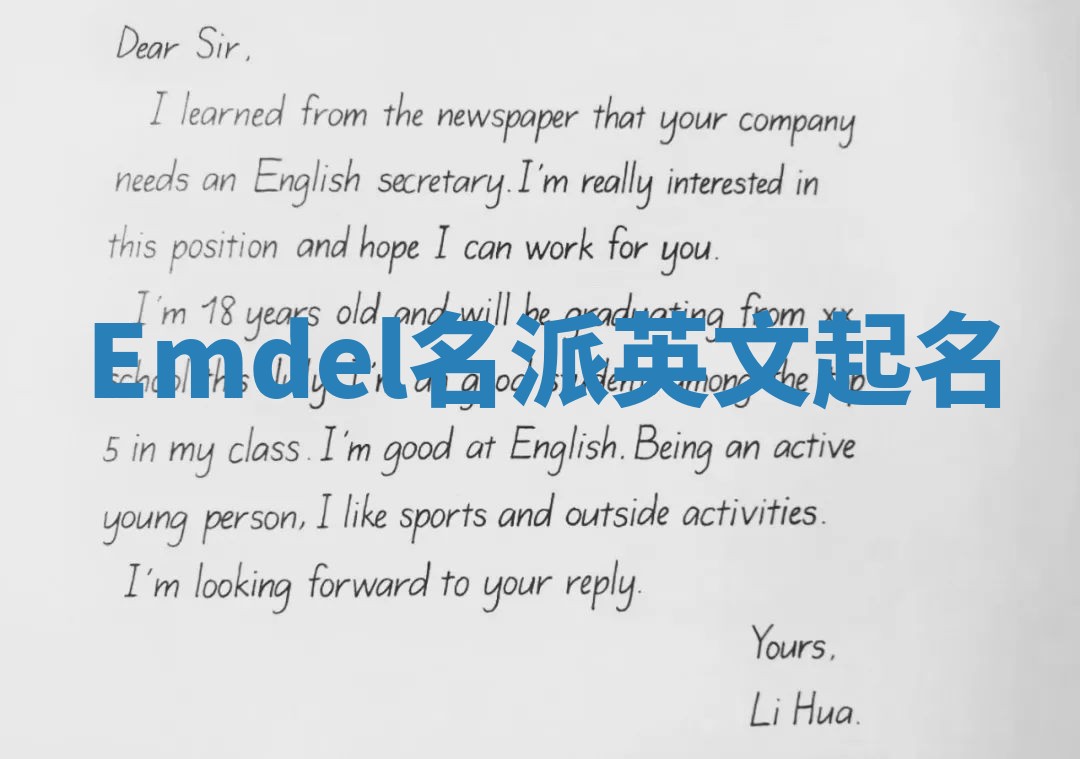 Dear Sir,
I learned from the newspaper that your company
needs an English secretary. I'm really interested in
this position and hope I can work for you.
I'm 18 years old and will be graduating from xx
Emdel名派英文起名
school this July. I'm a good student among the top
5 in my class. I'm good at English. Being an active
young person, I like sports and outside activities.
I'm looking forward to your reply.
Yours,
Li Hua.